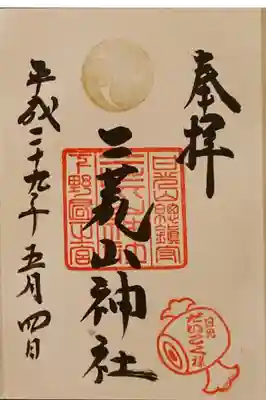 奉拝
二荒山神社
日光山總鎮守
下野國一宮
日光
だいこく様
平成二十九年五月四日